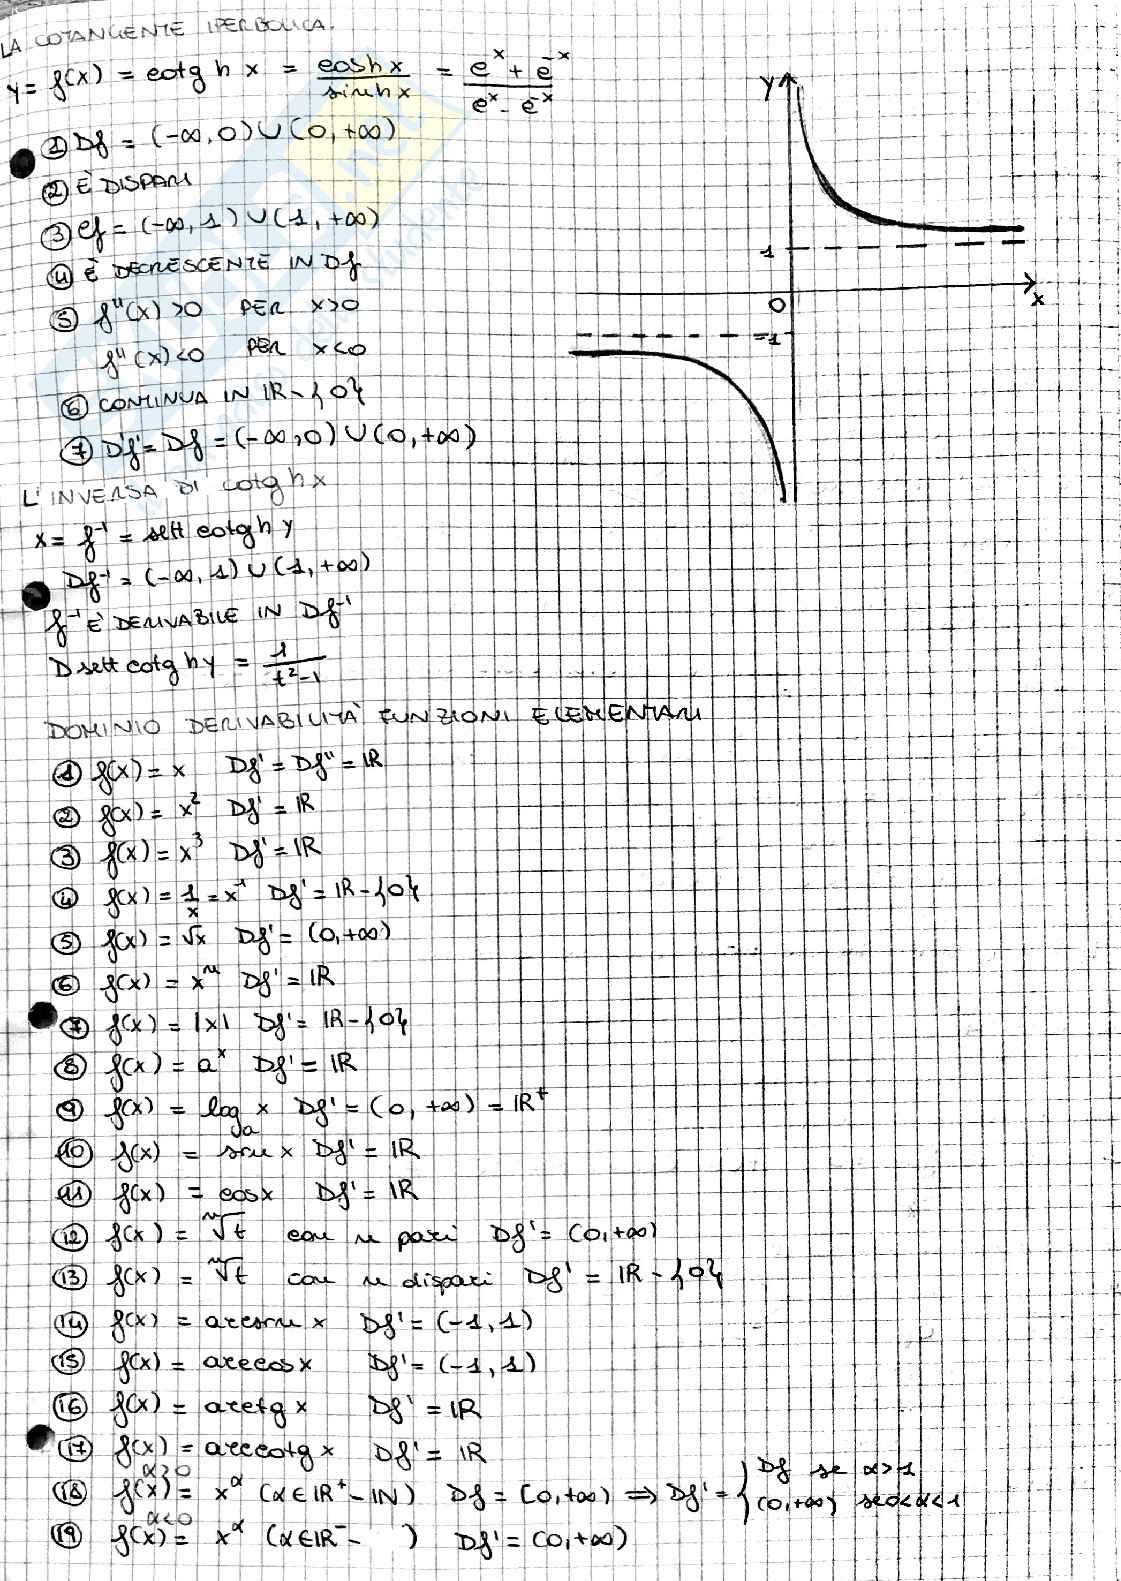 LA COTANGENTE IPERBOLICA.
y = f(x) = cotg h x = cosh x / sinh x = e^x + e^-x / e^x - e^-x
① Df = (-∞, 0) ∪ (0, +∞)
② È DISPARI
③ Cf = (-∞, 1) ∪ (1, +∞)
④ È DECRESCENTE IN Df
⑤ f''(x) > 0 PER x > 0
f''(x) < 0 PER x < 0
⑥ CONTINUA IN IR - {0}
⑦ Df' = Df = (-∞, 0) ∪ (0, +∞)
y
1
0
x
-1
L'INVERSA DI cotg h x
x = f^-1 = sett cotg h y
Df^-1 = (-∞, 1) ∪ (1, +∞)
f^-1 È DERIVABILE IN Df^-1
D sett cotg h y = 1 / t²-1
DOMINIO DERIVABILITÀ FUNZIONI ELEMENTARI
① f(x) = x Df' = Df'' = IR
② f(x) = x² Df' = IR
③ f(x) = x³ Df' = IR
④ f(x) = 1/x = x^-1 Df' = IR - {0}
⑤ f(x) = √x Df' = (0, +∞)
⑥ f(x) = x^n Df' = IR
⑦ f(x) = |x| Df' = IR - {0}
⑧ f(x) = a^x Df' = IR
⑨ f(x) = log_a x Df' = (0, +∞) = IR^+
⑩ f(x) = sen x Df' = IR
⑪ f(x) = cos x Df' = IR
⑫ f(x) = ⁿ√t con n pari Df' = (0, +∞)
⑬ f(x) = ⁿ√t con n dispari Df' = IR - {0}
⑭ f(x) = arcsen x Df' = (-1, 1)
⑮ f(x) = arccos x Df' = (-1, 1)
⑯ f(x) = arctg x Df' = IR
⑰ f(x) = arccotg x Df' = IR
α>0
⑱ f(x) = x^α (α ∈ IR^+ - IN) Df = [0, +∞) ⇒ Df' = { Df se α > 1
(0, +∞) se 0 < α < 1
α<0
⑲ f(x) = x^α (α ∈ IR^- - ) Df' = (0, +∞)